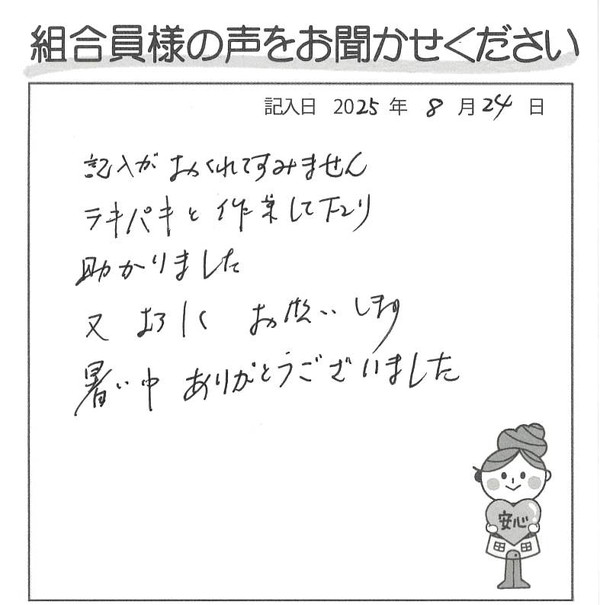 組合員様の声をお聞かせください
記入日 2025年 8月24日
記入がおくれてすみません
テキパキと作業して下さり
助かりました
又 よろしく お願いします
暑い中 ありがとうございました
安心